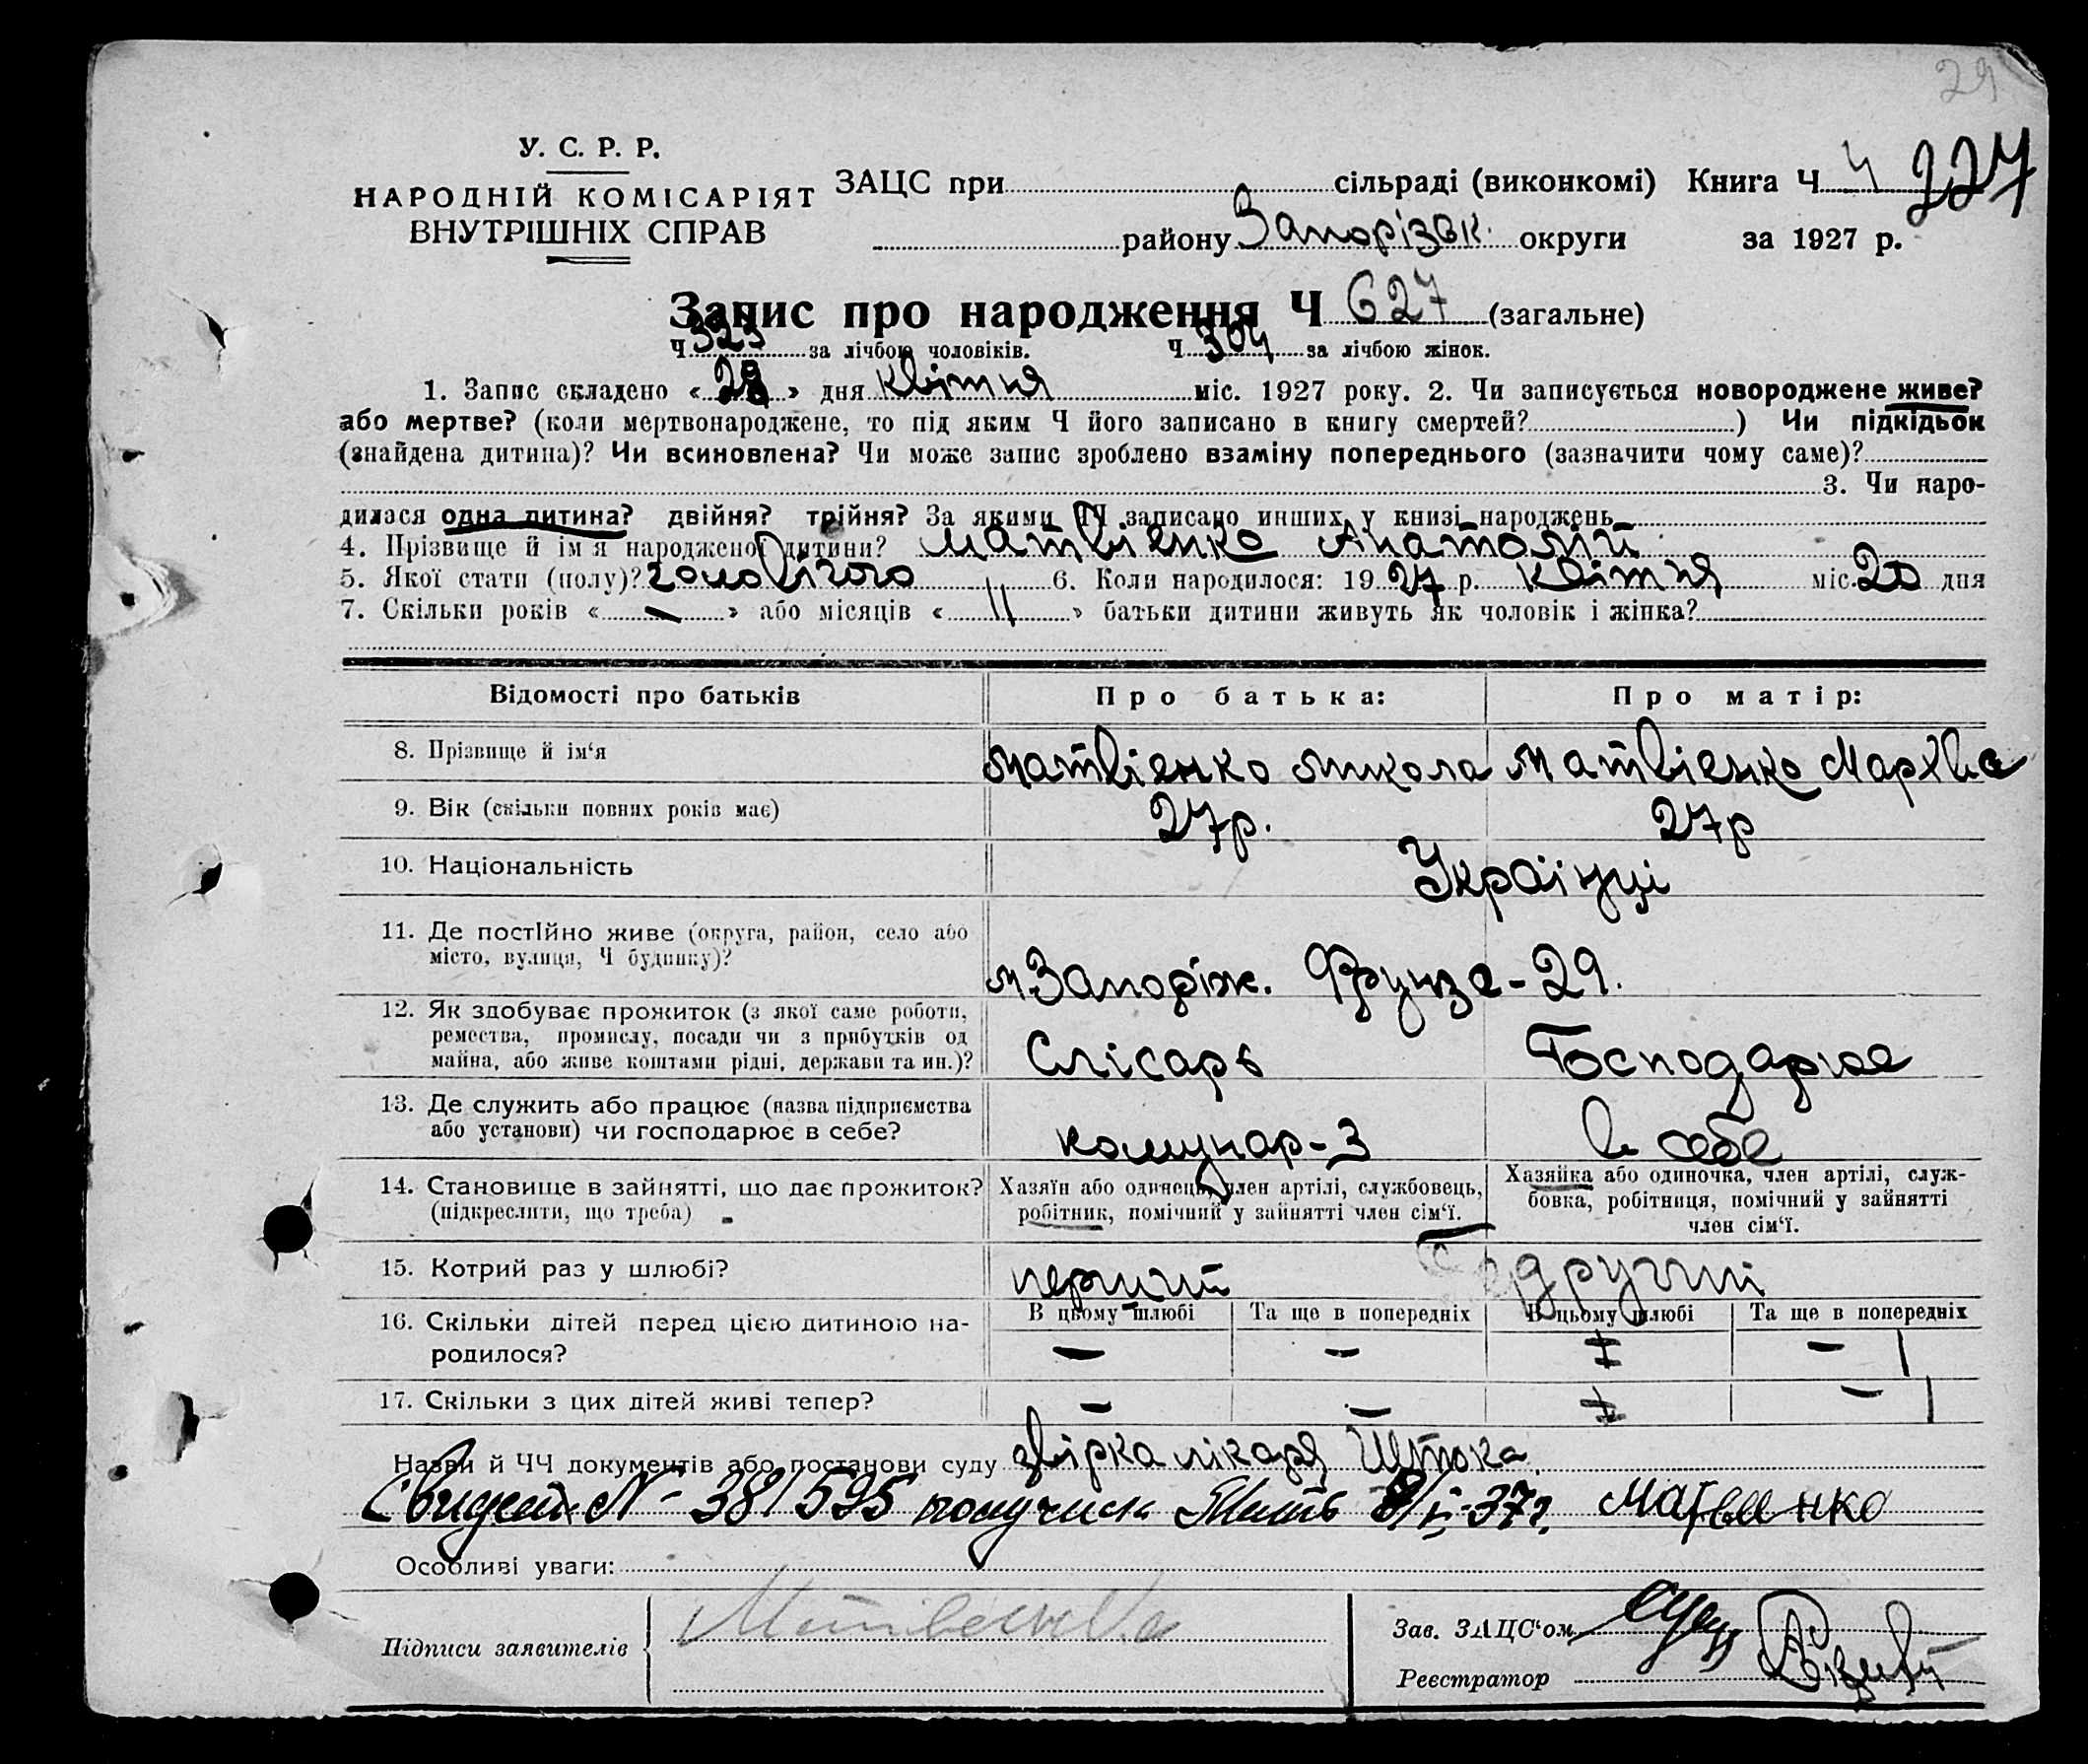 29
У. С. Р. Р.
НАРОДНІЙ КОМІСАРІЯТ
ВНУТРІШНІХ СПРАВ
ЗАЦС при сільраді (виконкомі) Книга Ч 4 227
району Запорізьк. округи за 1927 р.
Запис про народження Ч 627 (загальне)
Ч 323 за лічбою чоловіків. Ч 304 за лічбою жінок.
1. Запис складено « 28 » дня квітня міс. 1927 року. 2. Чи записується новороджене живе?
або мертве? (коли мертвонароджене, то під яким Ч його записано в книгу смертей? ) Чи підкідьок
(знайдена дитина)? Чи всиновлена? Чи може запис зроблено взаміну попереднього (зазначити чому саме)?
3. Чи наро-
дилася одна дитина? двійня? трійня? За якими ЧЧ записано инших у книзі народжень
4. Прізвище й ім'я народженої дитини? Матвієнко Анатолій
5. Якої стати (полу)? чоловічого 6. Коли народилося: 1927 р. квітня міс. 20 дня
7. Скільки років « — » або місяців « 11 » батьки дитини живуть як чоловік і жінка?
Відомості про батьків Про батька: Про матір:
8. Прізвище й ім'я Матвієнко Микола Матвієнко Мархва
9. Вік (скільки повних років має) 27р. 27р
10. Національність Українці
11. Де постійно живе (округа, район, село або
місто, вулиця, Ч будинку)? м. Запоріж. Фрунзе-29.
12. Як здобуває прожиток (з якої саме роботи,
ремества, промислу, посади чи з прибутків од
майна, або живе коштами рідні, держави та ин.)? Слісарь Господарює
13. Де служить або працює (назва підприємства
або установи) чи господарює в себе? комунар-3 в себе
14. Становище в зайнятті, що дає прожиток?
(підкреслити, що треба)
Хазяїн або одинець, член артілі, службовець,
робітник, помічний у зайнятті член сім'ї.
Хазяйка або одиночка, член артілі, служ-
бовка, робітниця, помічний у зайнятті
член сім'ї.
15. Котрий раз у шлюбі? перший другий
16. Скільки дітей перед цією дитиною на-
родилося?
В цьому шлюбі Та ще в попередніх В цьому шлюбі Та ще в попередніх
— — — 1
17. Скільки з цих дітей живі тепер? — — — 1
Назви й ЧЧ документів або постанови суду звірка лікаря Штока.
Свидет № 381595 получила Мать 8/I-37г. Матвеенко
Особливі уваги:
Підписи заявителів Матвеенко
Зав. ЗАЦС'ом
Реєстратор